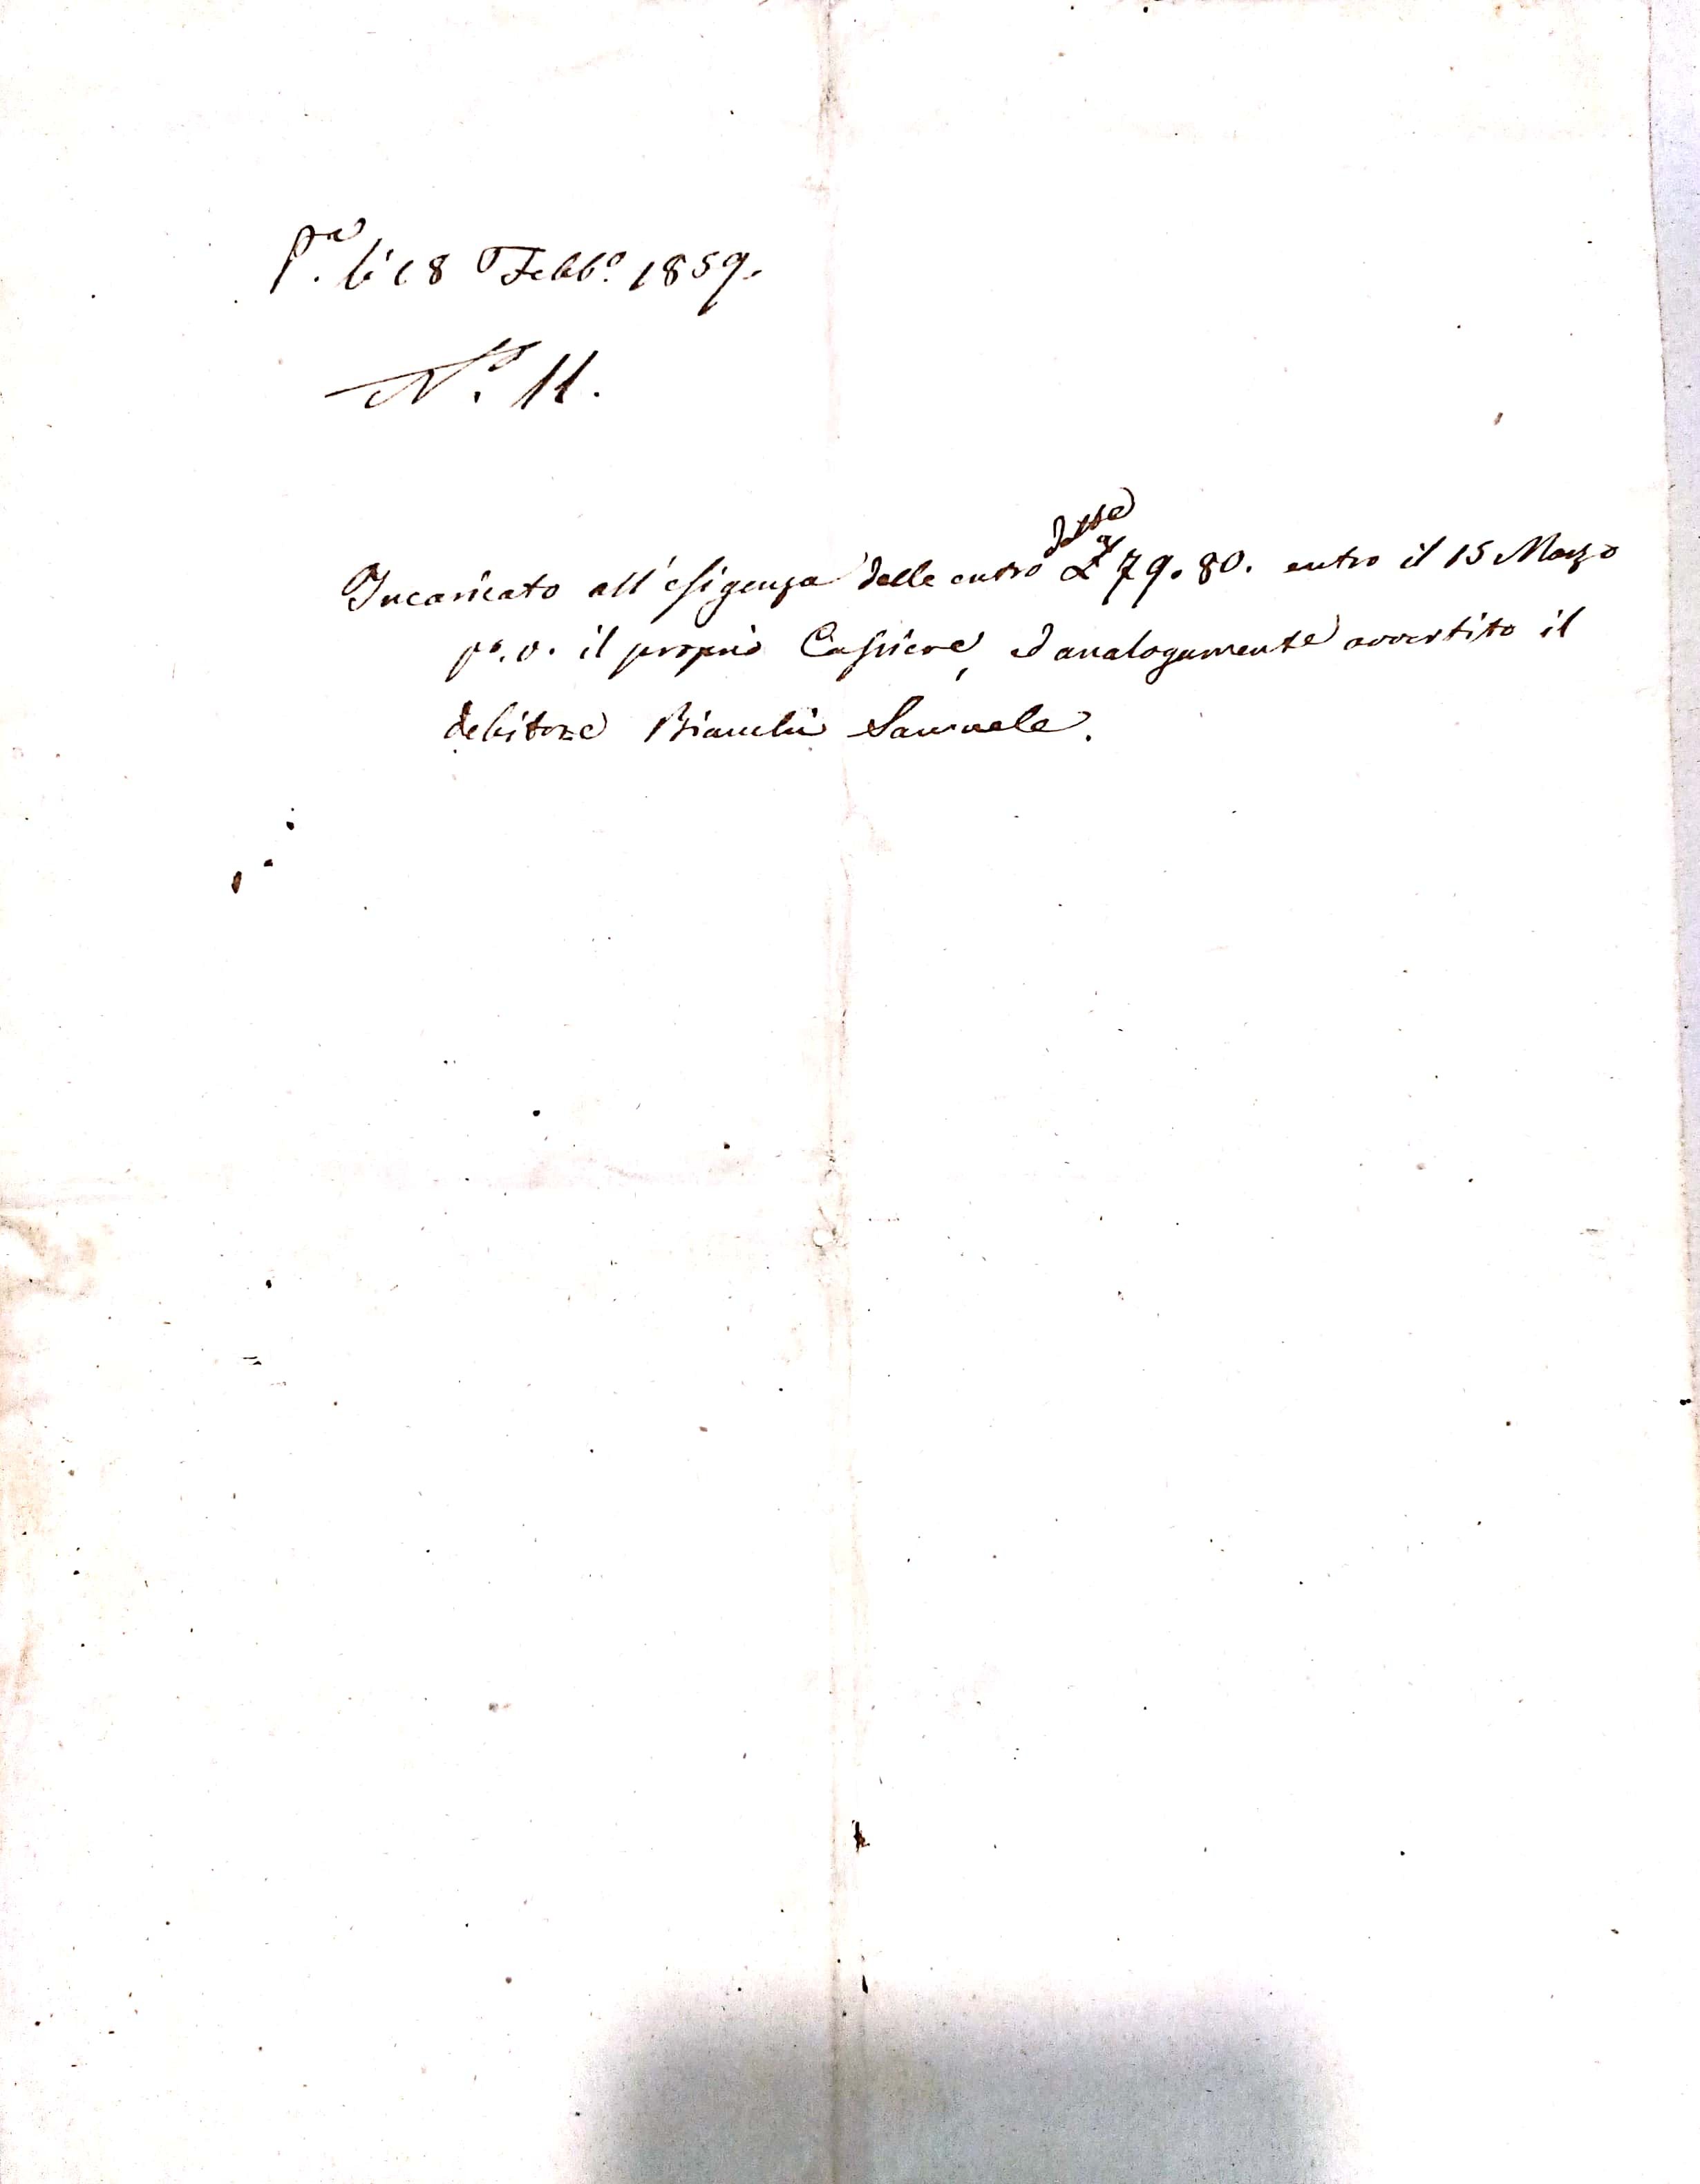 P.ta li 18 Febb.o 1859.
N.o 11.
dette
Incaricato all'esigenza delle entro £ 79.80. entro il 15 Marzo
p.o v. il proprio Cassiere, ed analogamente avvertito il
debitore Bianchi Samuele.